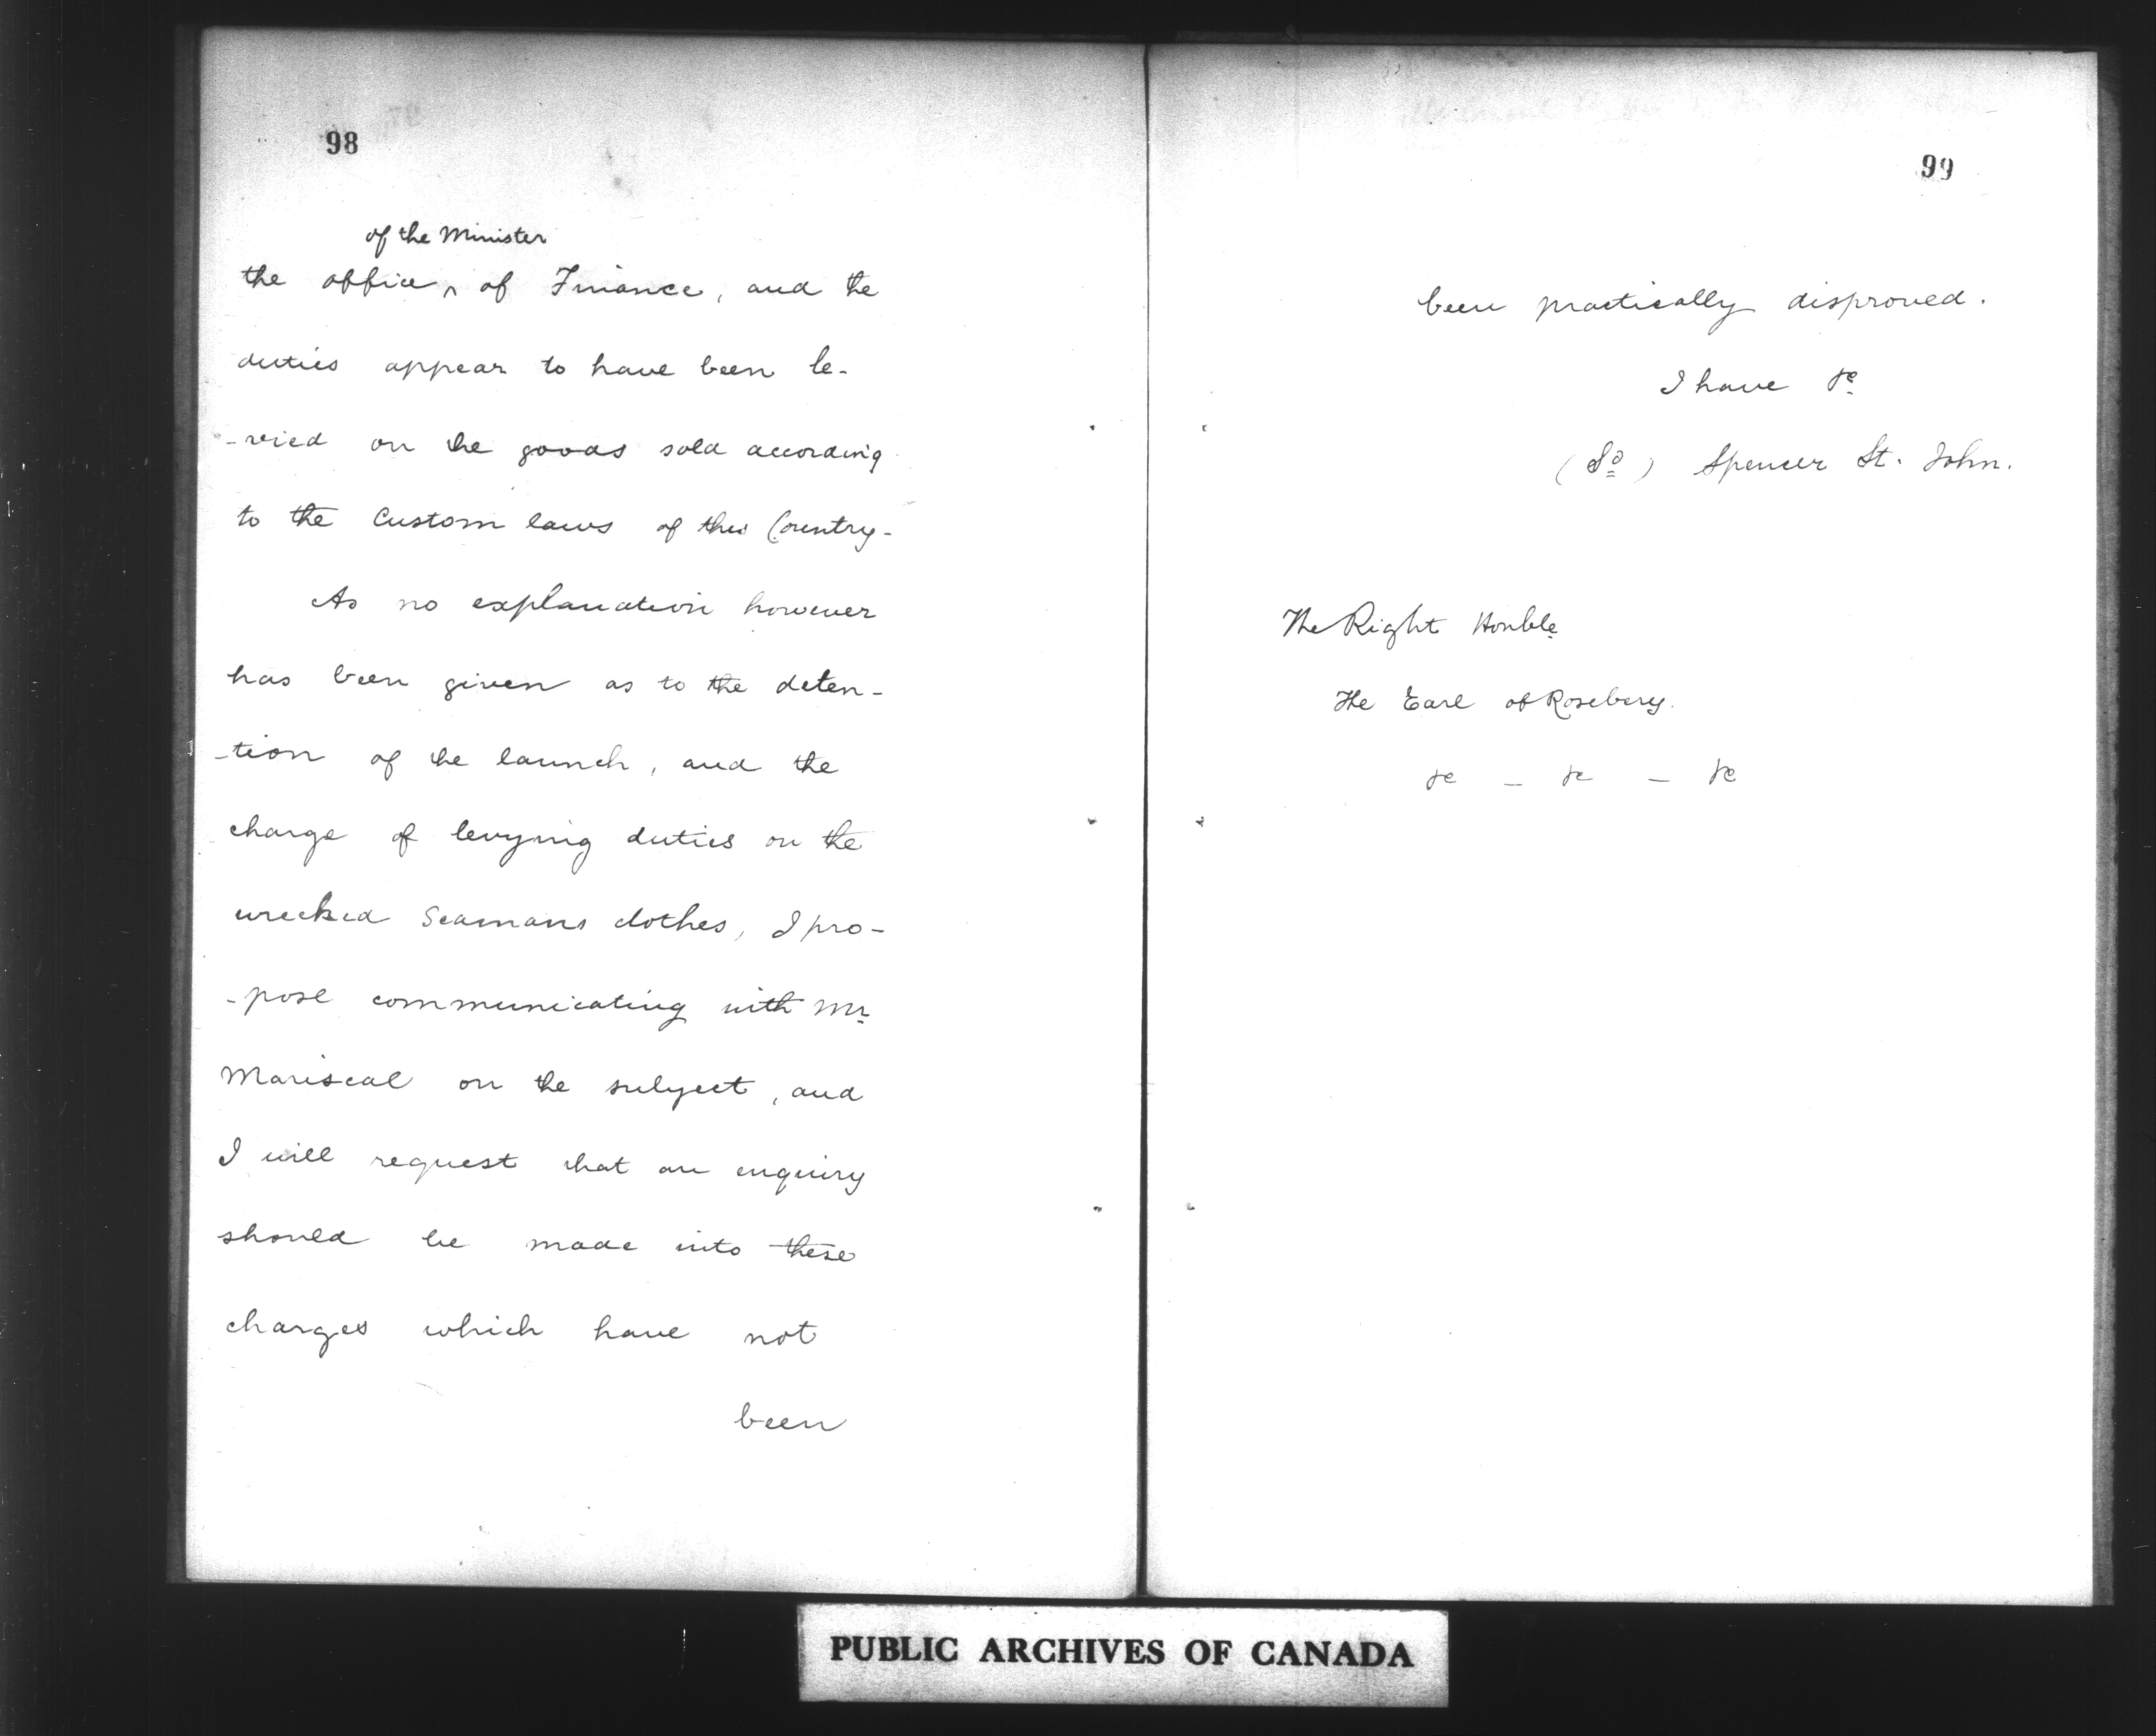 98
of the Minister
the office ^ of Finance, and the
duties appear to have been le-
-vied on the goods sold according
to the Custom laws of this Country-
As no explanation however
has been given as to the deten-
-tion of the launch, and the
charge of levying duties on the
wrecked Seamans clothes, I pro-
-pose communicating with Mr
Mariscal on the subject, and
I will request that an enquiry
should be made into these
charges which have not
been
99
been practically disproved.
I have &c
(Sd) Spencer St. John.
The Right Honble
The Earl of Rosebery.
&c - &c - &c
PUBLIC ARCHIVES OF CANADA